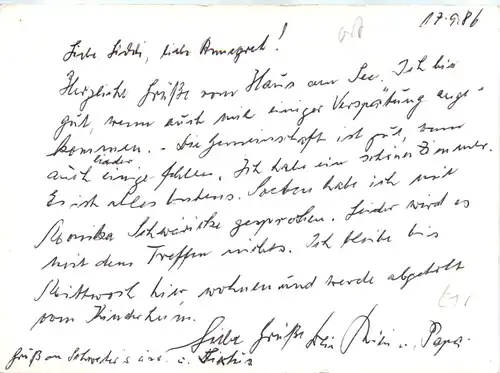 17.9.86
Liebe Liddi, liebe Annegret!
Herzliche Grüße vom Haus am See. Ich bin
gut, wenn auch mit einiger Verspätung ange-
kommen. – Die Gemeinschaft ist gut, wenn
auch leider einige fehlen. Ich habe ein schönes Zimmer.
Es ist alles bestens. Soeben habe ich mit
Monika gesprochen. Leider wird es
mit dem Treffen nichts. Ich bleibe bis
Mittwoch hier wohnen und werde abgeholt
vom Kinderheim.
Liebe Grüße u. Papa
Gruß an u.